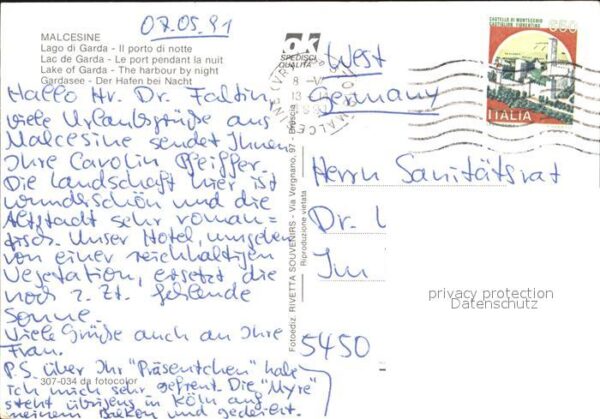 07.05.91
MALCESINE
Lago di Garda - Il porto di notte
Lac de Garda - Le port pendant la nuit
Lake of Garda - The harbour by night
Gardasee - Der Hafen bei Nacht
Hallo Hr. Dr. Faltin,
viele Urlaubsgrüße aus
Malcesine sendet Ihnen
Ihre Carolin Pfeiffer.
Die Landschaft hier ist
wunderschön und die
Altstadt sehr roman=
tisch. Unser Hotel, umgeben
von einer reichhaltigen
Vegetation, ersetzt die
noch z. Zt. fehlende
Sonne.
Viele Grüße auch an Ihre
Frau.
P.S. über Ihr "Präsentchen" habe
ich mich sehr gefreut. Die "Myre"
steht übrigens in Köln auf
meinem Balkon und gedeiht.
307-034 da fotocolor
ok
SPEDISCI
QUALITÀ
Fotoediz. RIVETTA SOUVENIRS - Via Vergnano, 97 - Brescia
Riproduzione vietata
CASTELLO DI MONTECCHIO
CASTIGLION FIORENTINO
650
ITALIA
West
Germany
Herrn Sanitätsrat
Dr.
Im
5450
privacy protection
Datenschutz